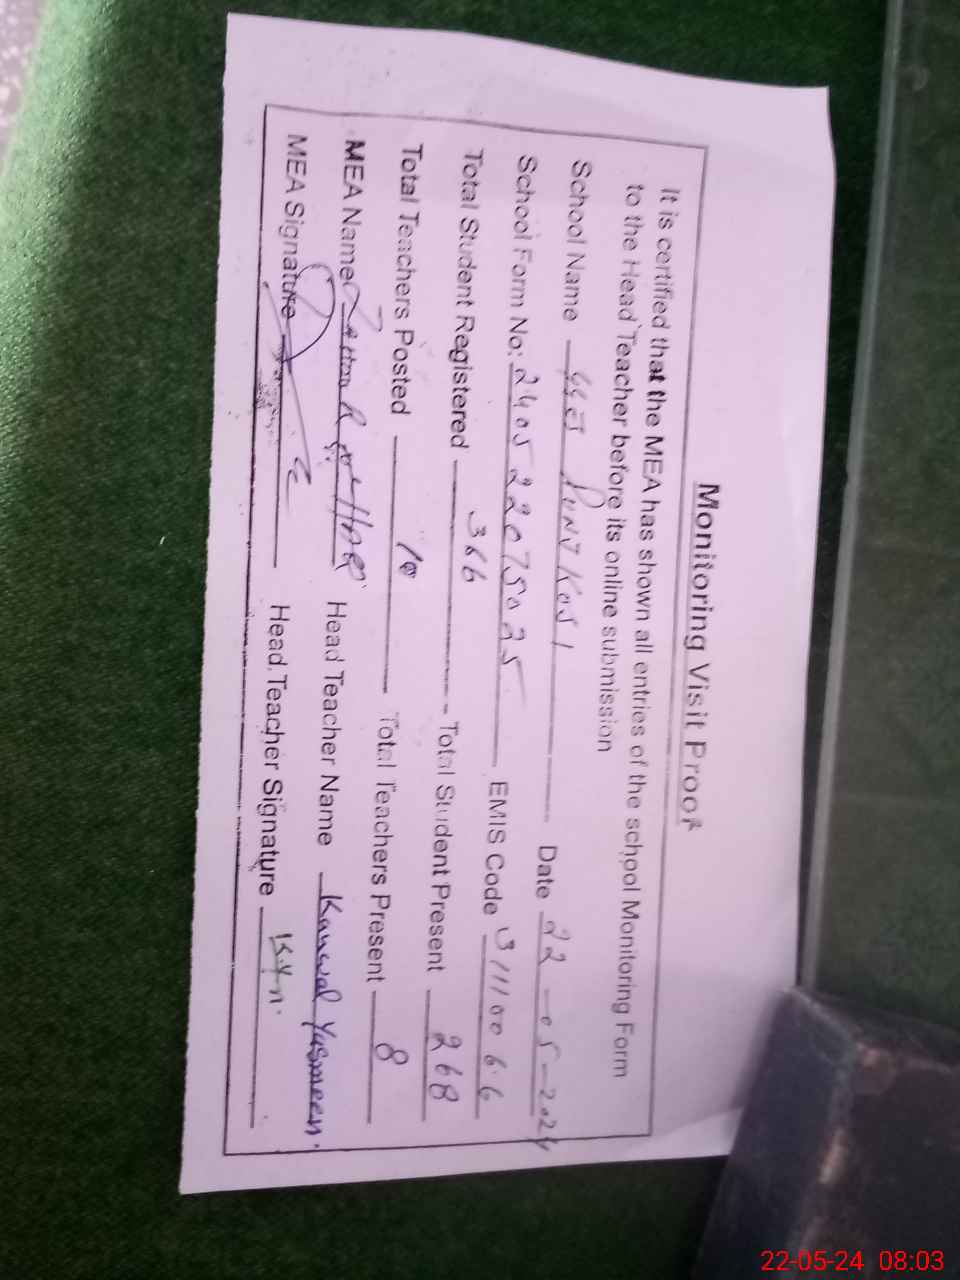 Monitoring Visit Proof
It is certified that the MEA has shown all entries of the school Monitoring Form
to the Head Teacher before its online submission
School Name GES Date 22-05-2024
School Form No: 2405 22075025 EMIS Code 31110066
Total Student Registered 366 Total Student Present 268
Total Teachers Posted 10 Total Teachers Present 8
MEA Name Head Teacher Name Kanwal Yasmeen.
MEA Signature Head Teacher Signature K.Y.n.
22-05-24 08:03